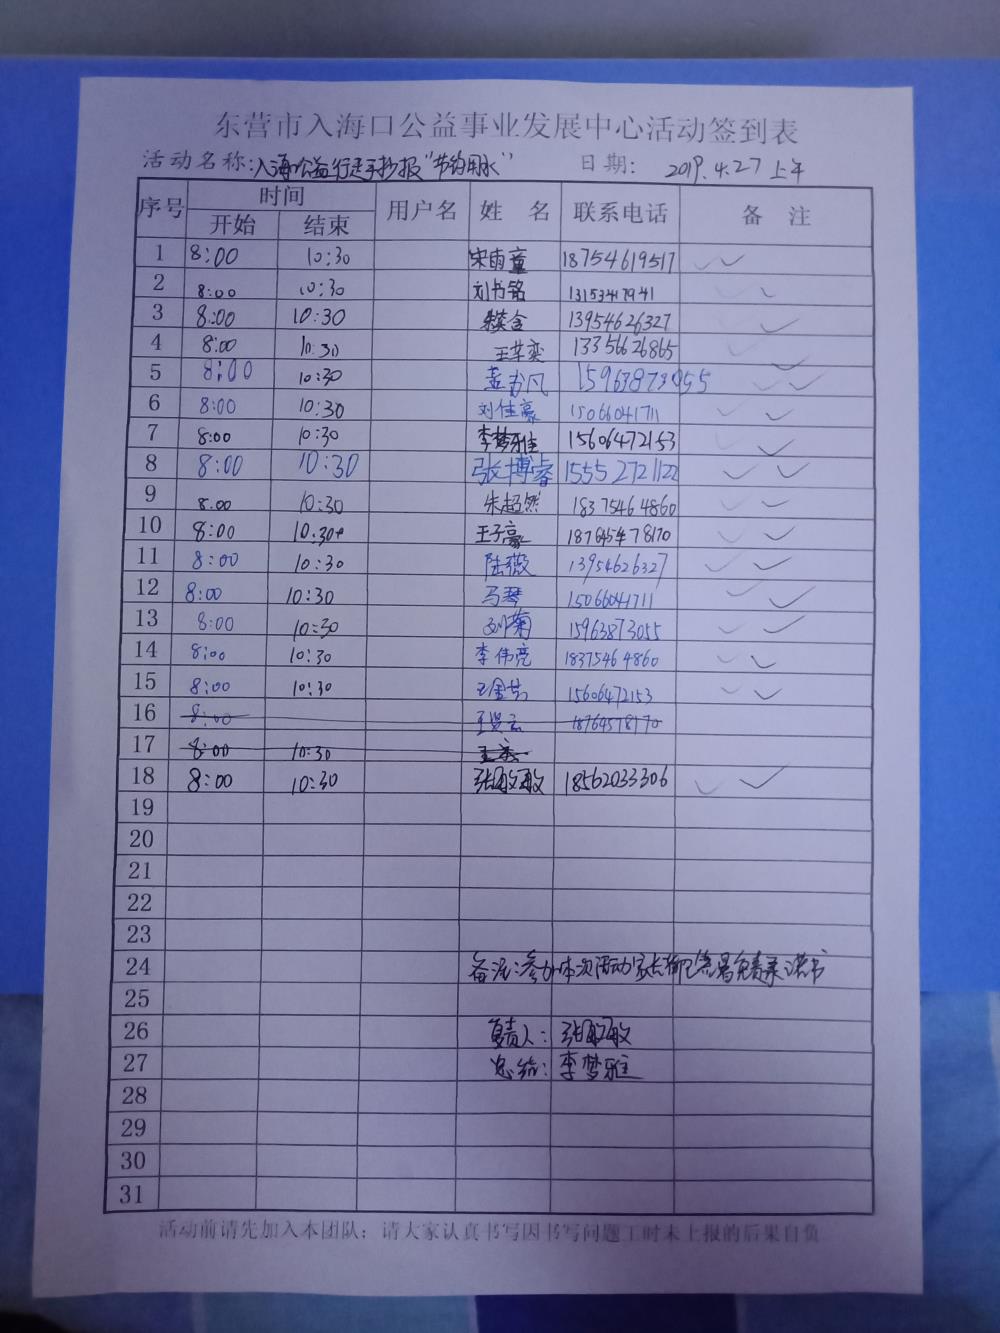 东营市入海口公益事业发展中心活动签到表
活动名称:入海公益行走手抄报"节约用水" 日期: 2019.4.27 上午
序号 时间 用户名 姓 名 联系电话 备 注
开始 结束
1 8:00 10:30 宋雨童 18754619517
2 8:00 10:30 刘书铭
3 8:00 10:30 13954626327
4 8:00 10:30 13356626865
5 8:00 10:30 15963873055
6 8:00 10:30 刘佳豪 15066041711
7 8:00 10:30 李梦雅 15606472153
8 8:00 10:30 张博睿 15552721122
9 8:00 10:30 朱超然 18375464860
10 8:00 10:30 王子豪 18764578170
11 8:00 10:30 陆薇 13954626327
12 8:00 10:30 马琴 15066041711
13 8:00 10:30 刘菊 15963873055
14 8:00 10:30 李伟亮 18375464860
15 8:00 10:30 15606472153
16 8:00 18764578170
17 8:00 10:30
18 8:00 10:30 张敏敏 18562033306
19
20
21
22
23
24 备注:参加本次活动家长都已签署免责承诺书
25
26 负责人: 张敏敏
27 总结: 李梦雅
28
29
30
31
活动前请先加入本团队; 请大家认真书写因书写问题工时未上报的后果自负